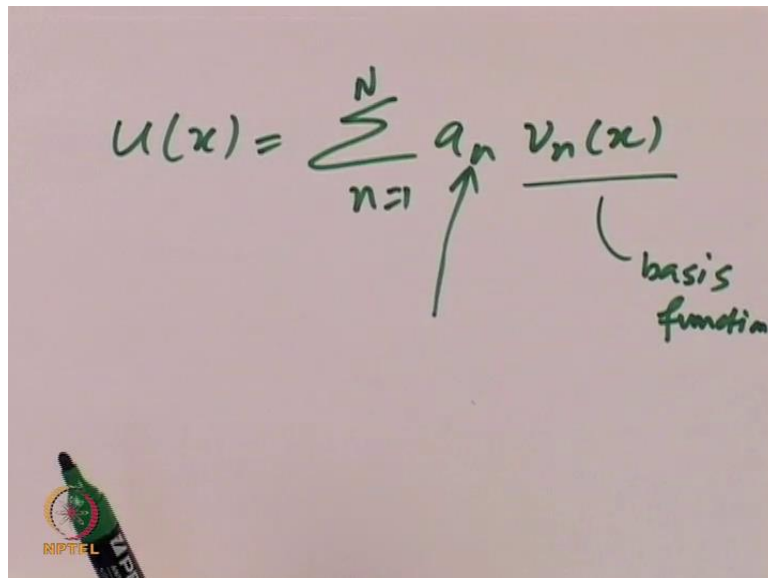 u(x) = N∑n=1 aₙ vₙ(x)
basis
function
NPTEL